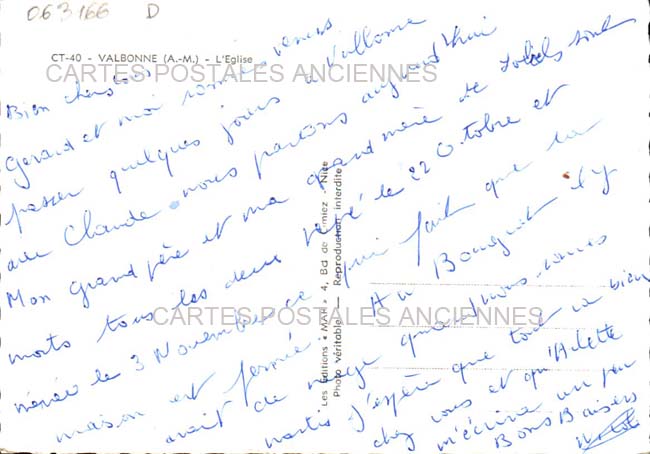 063166 D
CT-40 - VALBONNE (A.-M.) - L'Eglise
CARTES POSTALES ANCIENNES
Bien chers tous
Gerard et moi sommes venus
passer quelques jours à Valbonne
avec Claude. nous partons aujourd'hui
Mon grand père et ma grand mère de sont
morts tous les deux pépé le 22 Octobre et
mémée le 3 Novembre ce qui fait que la
maison est fermée. Au Bouquet il y
avait de la neige quand nous sommes
partis J'espère que tout va bien
chez vous et qu'Arlette
m'écrira un peu
Bons Baisers
CARTES POSTALES ANCIENNES
Les Editions « MAR » 4, Bd de Cimiez - Nice
Photo véritable - Reproduction interdite